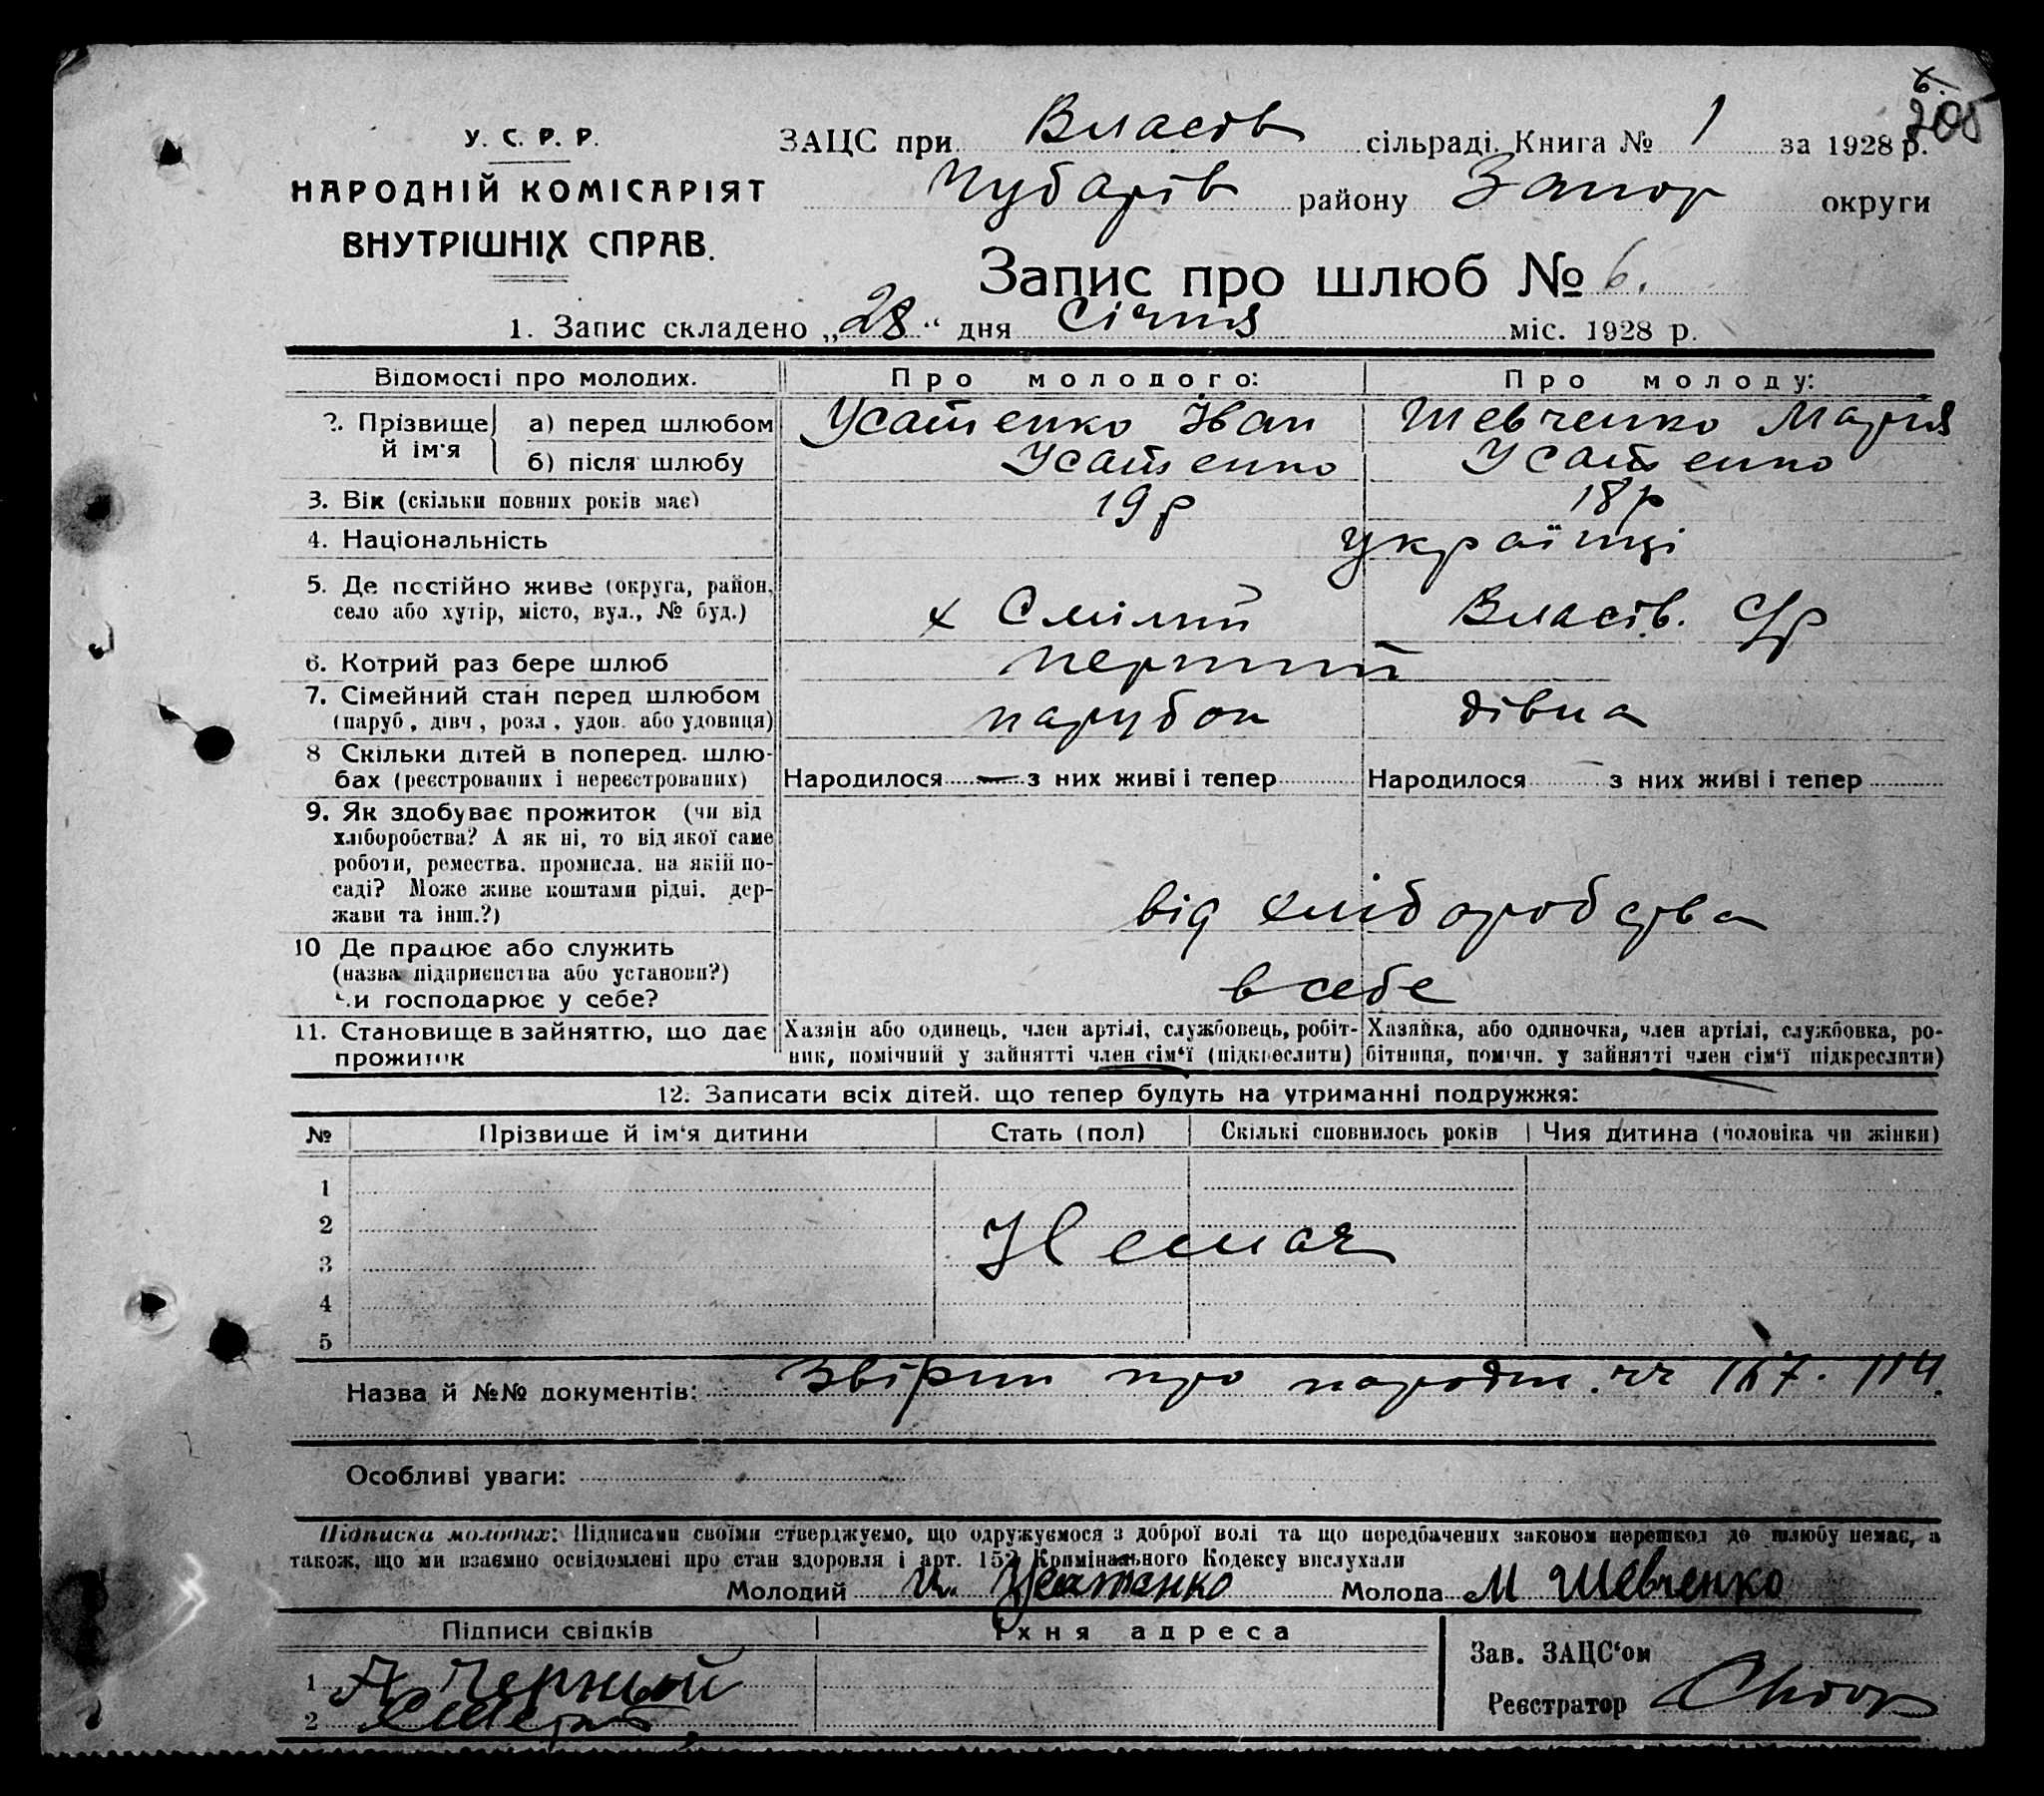 6.
205
У. С. Р. Р.
НАРОДНІЙ КОМІСАРІЯТ
ВНУТРІШНІХ СПРАВ.
ЗАЦС при Власів сільраді. Книга № 1 за 1928 р.
Чубарів району Запор округи
Запис про шлюб № 6.
1. Запис складено „28“ дня Січня міс. 1928 р.
Відомості про молодих. Про молодого: Про молоду:
2. Прізвище й ім'я а) перед шлюбом Усатенко Іван Шевченко Мария
б) після шлюбу Усатенко Усатенко
3. Вік (скільки повних років має) 19 р 18 р
4. Національність українці
5. Де постійно живе (округа, район, село або хутір, місто, вул., № буд.) х Смілий Власів. С/р
6. Котрий раз бере шлюб перший
7. Сімейний стан перед шлюбом (паруб., дівч., розл., удов. або удовиця) парубок дівка
8 Скільки дітей в поперед. шлюбах (реєстрованих і нереєстрованих) Народилося — з них живі і тепер Народилося з них живі і тепер
9. Як здобуває прожиток (чи від
хліборобства? А як ні, то від якої саме
роботи, ремества, промисла, на якій по-
саді? Може живе коштами рідні, дер-
жави та інш.?) від хліборобства
10 Де працює або служить
(назва підприємства або установи?)
Чи господарює у себе? в себе
11. Становище в зайняттю, що дає прожиток
Хазяїн або одинець, член артілі, службовець, робіт-
ник, помічний у зайнятті член сім'ї (підкреслити)
Хазяйка, або одиночка, член артілі, службовка, ро-
бітниця, помічн. у зайнятті член сім'ї підкреслити)
12. Записати всіх дітей, що тепер будуть на утриманні подружжя:
№ Прізвище й ім'я дитини Стать (пол) Скількі сповнилось років Чия дитина (чоловіка чи жінки)
1
2
3
4
5
Немає
Назва й №№ документів: Звірки про народж. чч 167. 114.
Особливі уваги:
Підписка молодих: Підписами своїми стверджуємо, що одружуємося з доброї волі та що передбачених законом перешкод до шлюбу немає, а
також, що ми взаємно освідомлені про стан здоровля і арт. 152 Кримінального Кодексу вислухали
Молодий И. Усатенко Молода М Шевченко
Підписи свідків Їхня адреса
Зав. ЗАЦС'ом
1 А Черный
Реєстратор
2